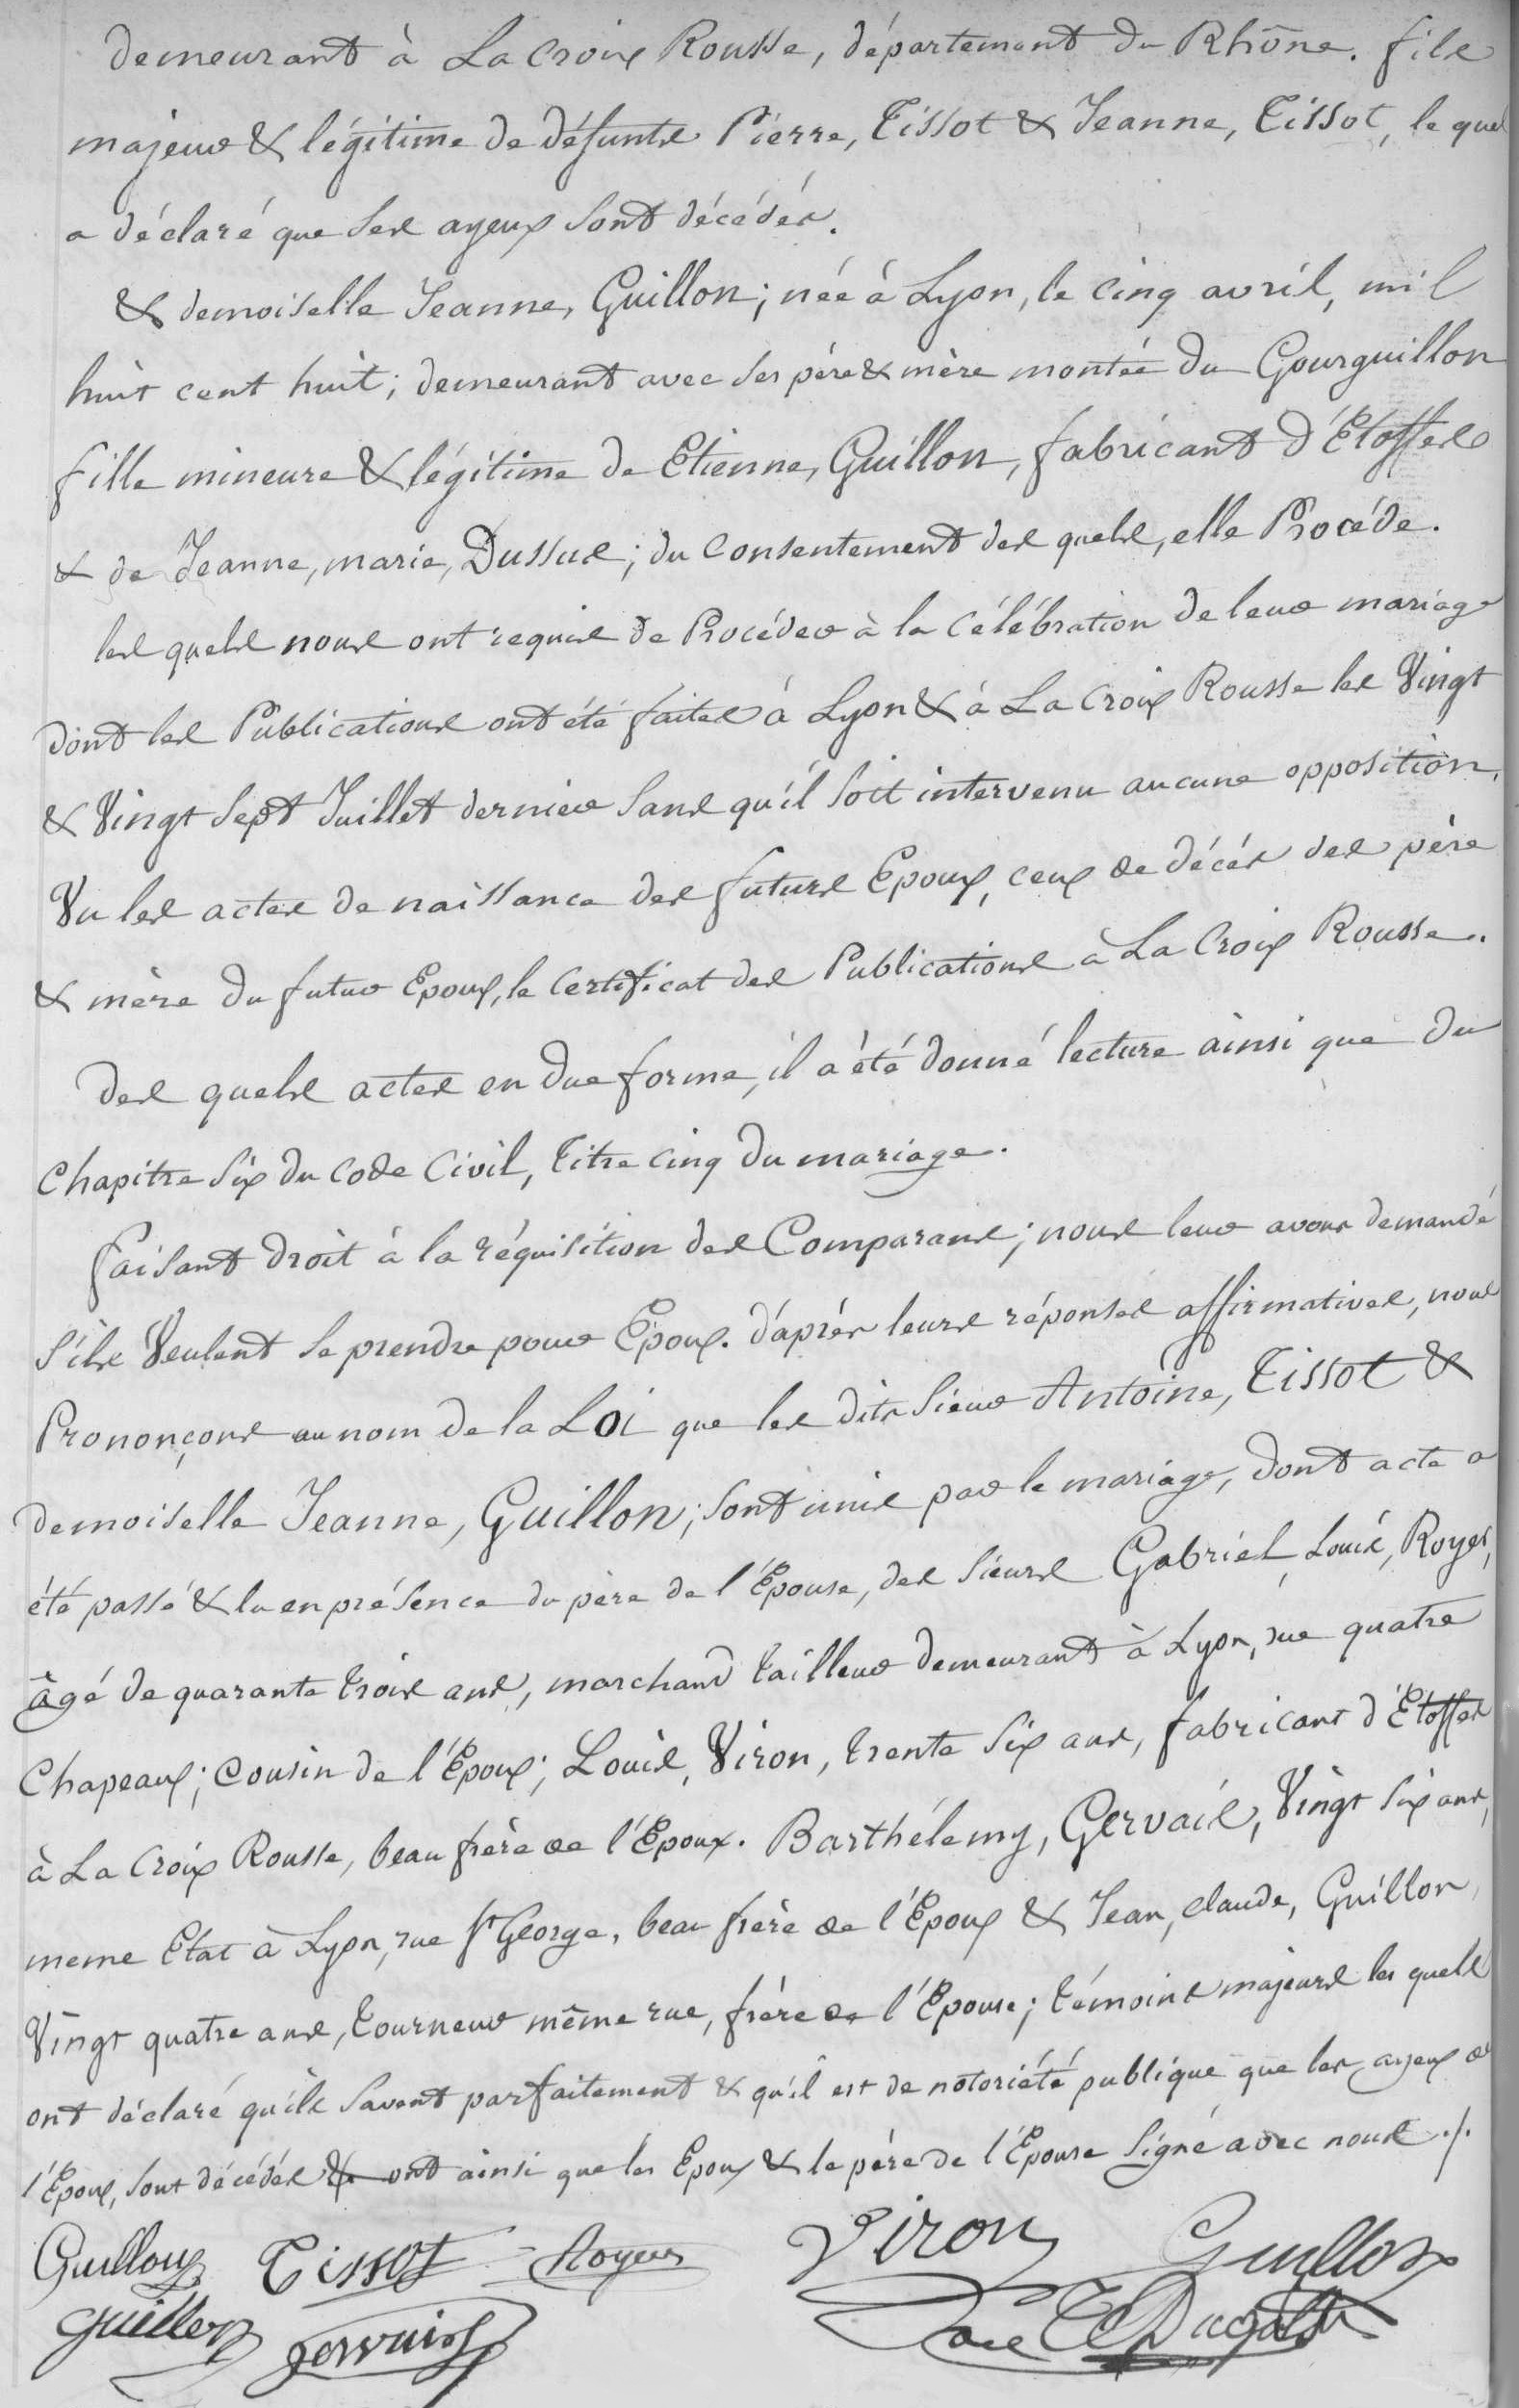 demeurant à La Croix Rousse, département du Rhône. fils
majeur & légitime de défunts Pierre, Tissot & Jeanne, Tissot, le quel
a déclaré que ses ayeux sont décédés.
& demoiselle Jeanne, Guillon; née à Lyon, le cinq avril, mil
huit cent huit; demeurant avec ses père & mère montée du Gourguillon
fille mineure & légitime de Etienne, Guillon, fabricant d'Etoffes
& de Jeanne, marie, Dussus; du Consentement des quels, elle Procéde.
les quels nous ont requis de Procéder à la Célébration de leur mariage
dont les Publications ont été faites à Lyon & à La Croix Rousse les Vingt
& Vingt Sept Juillet dernier sans qu'il soit intervenu aucune opposition.
Vu les actes de naissance des futurs Epoux, ceux de décés des père
& mère du futur Epoux, le Certificat des Publications à La Croix Rousse.
des quels actes en due forme, il a été donné lecture ainsi que du
Chapitre Six du Code Civil, titre cinq du mariage.
faisant droit à la réquisition des Comparans; nous leur avons demandé
s'ils Veulent se prendre pour Epoux. d'après leurs réponses affirmatives, nous
Prononçons au nom de la Loi que les dits Sieur Antoine, Tissot &
demoiselle Jeanne, Guillon; sont unis par le mariage, dont acte a
été passé & lu en présence du père de l'Epouse, des Sieurs Gabriel, Louis, Royer,
âgé de quarante trois ans, marchand tailleur demeurant à Lyon, rue quatre
Chapeaux; Cousin de l'Epoux; Louis, Viron, trente Six ans, fabricant d'Etoffes
à La Croix Rousse, beau frère de l'Epoux. Barthélemy, Gervais, Vingt Six ans,
meme Etat à Lyon, rue St George, beau frère de l'Epoux & Jean, claude, Guillon,
Vingt quatre ans, tourneur même rue, frère de l'Epouse; témoins majeurs les quels
ont déclaré qu'ils savent parfaitement & qu'il est de notoriété publique que les ayeux de
l'Epoux, sont décédés & ont ainsi que les Epoux & le père de l'Epouse Signé avec nous ./.
Guillon Tissot Royer Viron Guillon
Guillon gervais